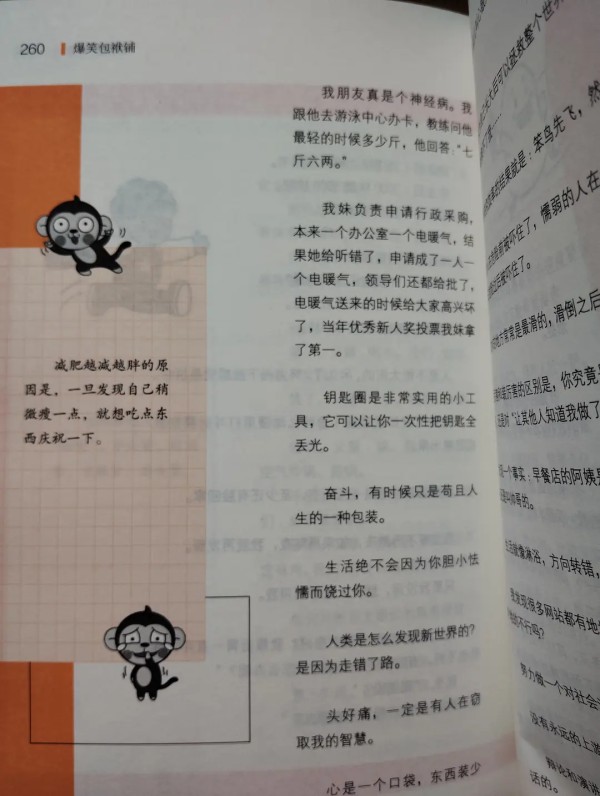 260
爆笑包袱铺
我朋友真是个神经病。我
跟他去游泳中心办卡，教练问他
最轻的时候多少斤，他回答："七
斤六两。"
我妹负责申请行政采购，
本来一个办公室一个电暖气，结
果她给听错了，申请成了一人一
个电暖气，领导们还都给批了，
电暖气送来的时候给大家高兴坏
了，当年优秀新人奖投票我妹拿
了第一。
钥匙圈是非常实用的小工
具，它可以让你一次性把钥匙全
丢光。
奋斗，有时候只是苟且人
生的一种包装。
生活绝不会因为你胆小怯
懦而饶过你。
人类是怎么发现新世界的？
是因为走错了路。
头好痛，一定是有人在窃
取我的智慧。
心是一个口袋，东西装少
减肥越减越胖的原
因是，一旦发现自己稍
微瘦一点，就想吃点东
西庆祝一下。
大后可以拯救整个世界
结果就是：笨鸟先飞，然
被吓住了，懦弱的人在
被吓住了。
常常是最滑的，滑倒之后
厉害的区别是，你究竟
"让其他人知道我做了
一个事实，早餐店的阿姨
淋浴，方向转错，
发现很多网站都有地
不行吗？
努力做一个对社会
没有永远的上游
辩论和演讲
话的。